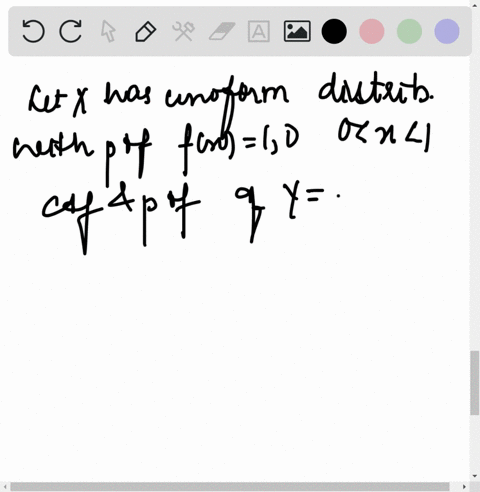 Let X has unoform distrib.
with pdf f(x) = 1, 0 0<x<1
cdf & pdf of Y = .